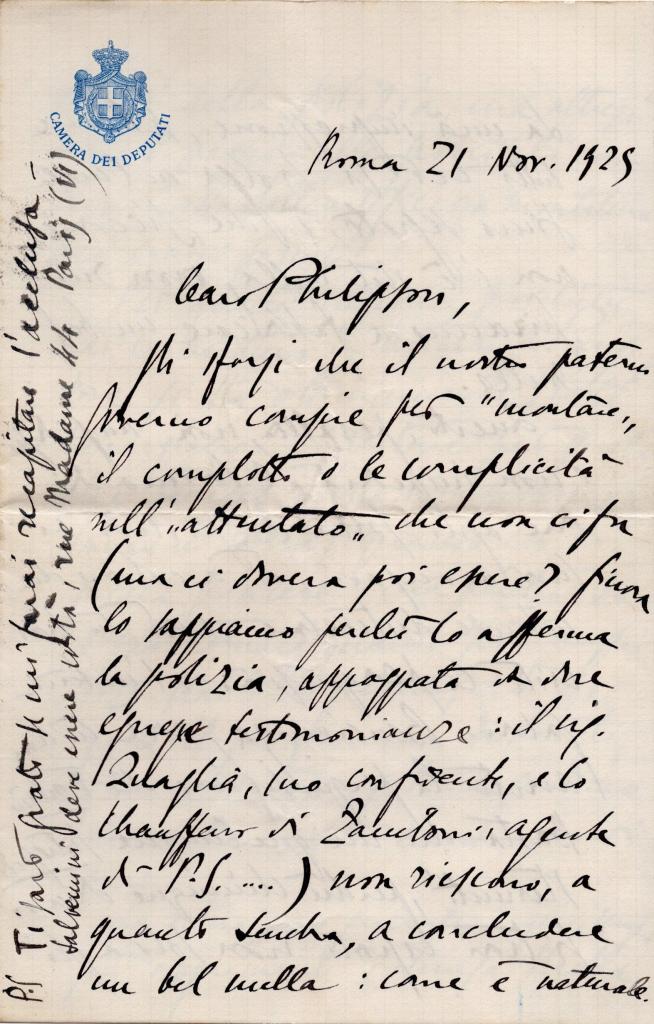 CAMERA DEI DEPUTATI
Roma 21 Nov. 1925
Caro Philipson,
Gli sforzi che il nostro paterno
Governo compie per "montare„
il complotto o le complicità
nell'„attentato„ che non ci fu
(ma ci doveva poi essere? finora
lo sappiamo perchè lo afferma
la polizia, appoggiata da due
egregie testimonianze: il sig.
Quaglia, suo confidente, e lo
chauffeur di Zaniboni, agente
di P.S. ....) non riescono, a
quanto sembra, a concludere
un bel nulla: come è naturale.
P.S Ti sarò grato se mi farai recapitare l'acclusa -
Salvemini deve essere costà, rue Madame 44 Paris (VI)